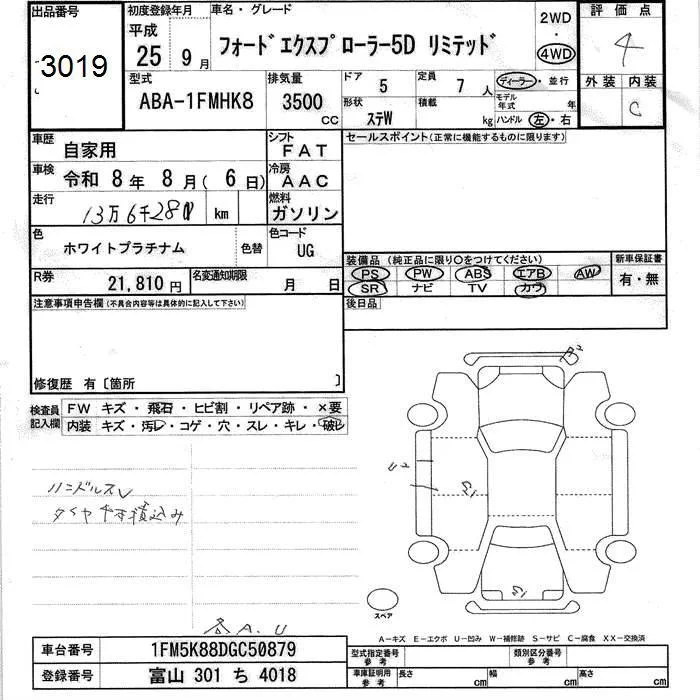 出品番号
3019
初度登録年月
平成
25 9月
車名・グレード
フォードエクスプローラー5D リミテッド
2WD
・
4WD
評価点
4
外装 内装
C
型式
ABA-1FMHK8
排気量
3500
cc
ドア 5
形状 ステW
定員 7 人
積載 kg
ディーラー・並行
モデル年式 年
ハンドル 左・右
車歴 自家用
シフト FAT
セールスポイント(正常に機能するものに限ります)
車検 令和 8年 8月( 6日)
冷房 AAC
走行 13万6千28 km
燃料 ガソリン
色 ホワイトプラチナム 色替
色コード UG
R券 21,810円
名変通知期限 月 日
装備品(純正品に限り〇をつけてください)
新車保証書
PS PW ABS エアB AW
SR ナビ TV カワ
有・無
注意事項申告欄(不具合内容等は具体的に記入して下さい)
後日品
修復歴 有〔箇所 〕
検査員記入欄
FW キズ・飛石・ヒビ割・リペア跡・×要
内装 キズ・汚レ・コゲ・穴・スレ・キレ・破レ
U2
ハンドルスレ
タイヤ 積込み
スペア
各A.U
A-キズ E-エクボ U-凹み W-補修跡 S-サビ C-腐食 XX-交換済
車台番号 1FM5K88DGC50879
登録番号 富山 301 ち 4018
型式指定番号 参考
類別区分番号 参考
車庫証明用 参考 長さ cm 幅 cm 高さ cm